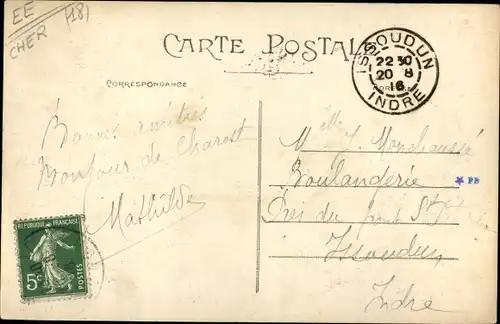 EE
CHER
(18)
CARTE POSTALE
CORRESPONDANCE
ISSOUDUN
22 30
20 8
16
INDRE
Bonnes amitiés
Bonjour de Charost
Mathilde
Melle J. Monchaussé
Boulangerie
Près du pont St
Issoudun
Indre
PB
REPUBLIQUE FRANÇAISE
5c
POSTES